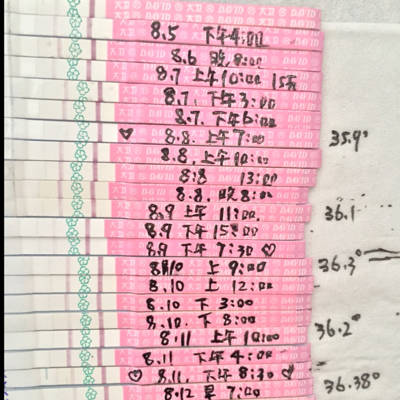 8.5 下午4:00
8.6 晚8:00
8.7 上午10:00
8.7. 下午3:00
8.7. 下午6:00
♡ 8.8. 上午7:00 35.9°
8.8. 上午10:00
8.8 13:00
8.8. 晚8:00
8.9 上午11:00. 36.1
8.9 下午15:00
8.9 下午7:30 ♡
8.10 上9:00 36.3°
8.10 上12:00
8.10 下3:00
8.10. 下8:00
8.11 上午10:00 36.2°
8.11 下午4:00
♡ 8.11. 下午8:30 ♡
8.12 早7:00 36.38°